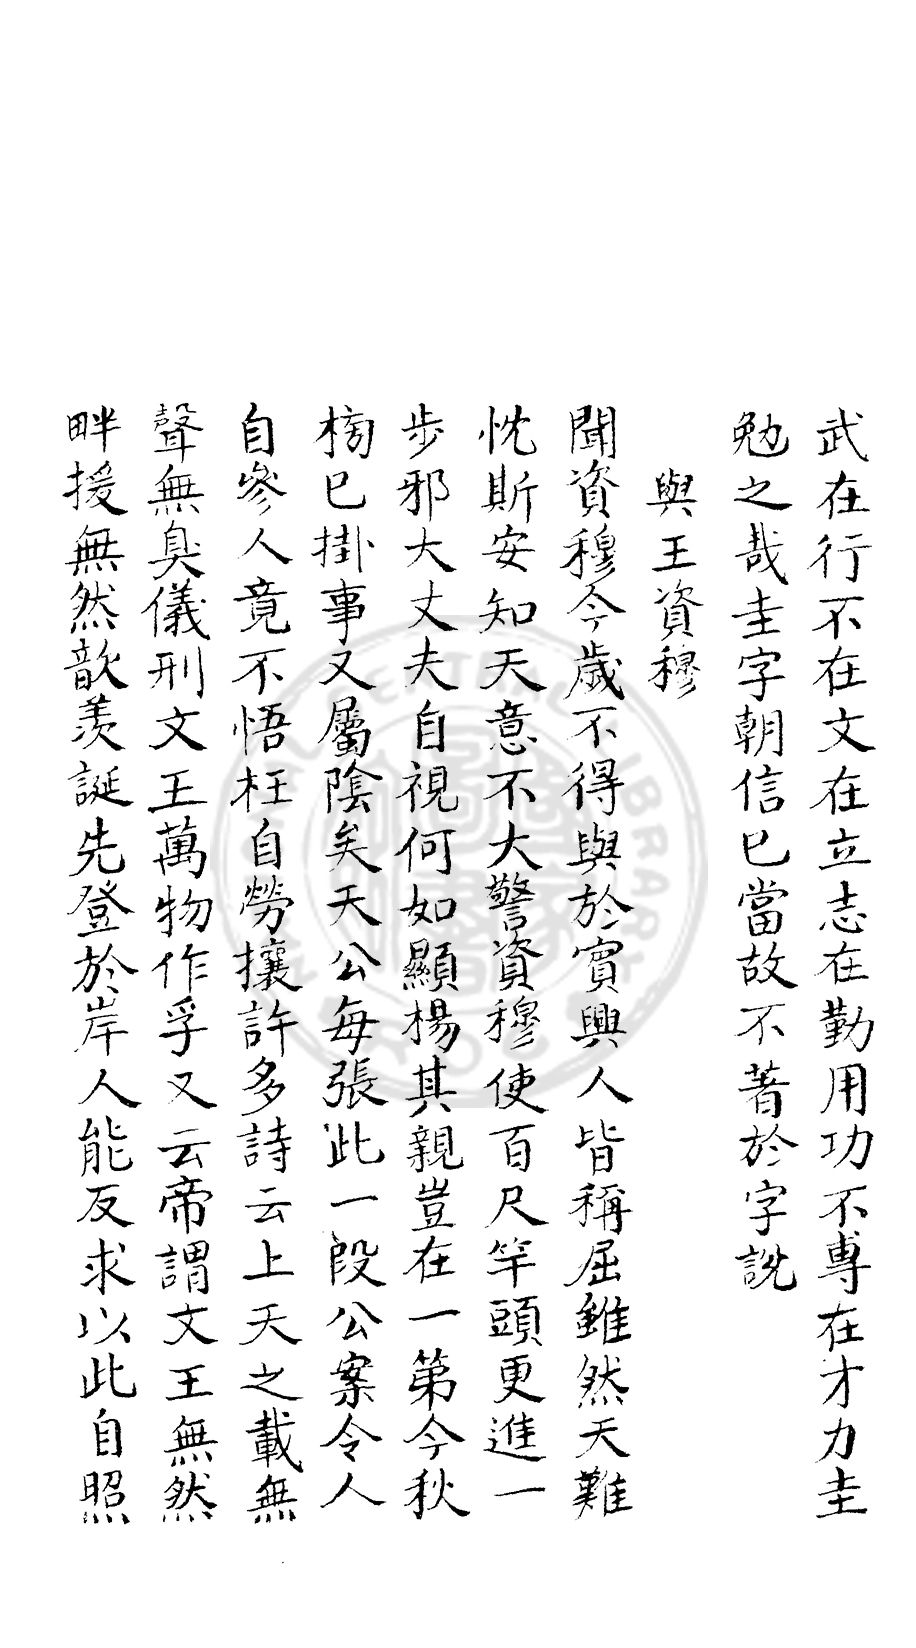 武在行不在文在立志在勤用功不專在才力圭
勉之哉圭字朝信已當故不著於字說
與王資穆
聞資穆今歲不得與於賓興人皆稱屈雖然天難
忱斯安知天意不大警資穆使百尺竿頭更進一
步邪大丈夫自視何如顯揚其親豈在一第今秋
榜已掛事又屬陰矣天公每張此一段公案令人
自參人竟不悟枉自勞攘許多詩云上天之載無
聲無臭儀刑文王萬物作孚又云帝謂文王無然
畔援無然歆羨誕先登於岸人能反求以此自照